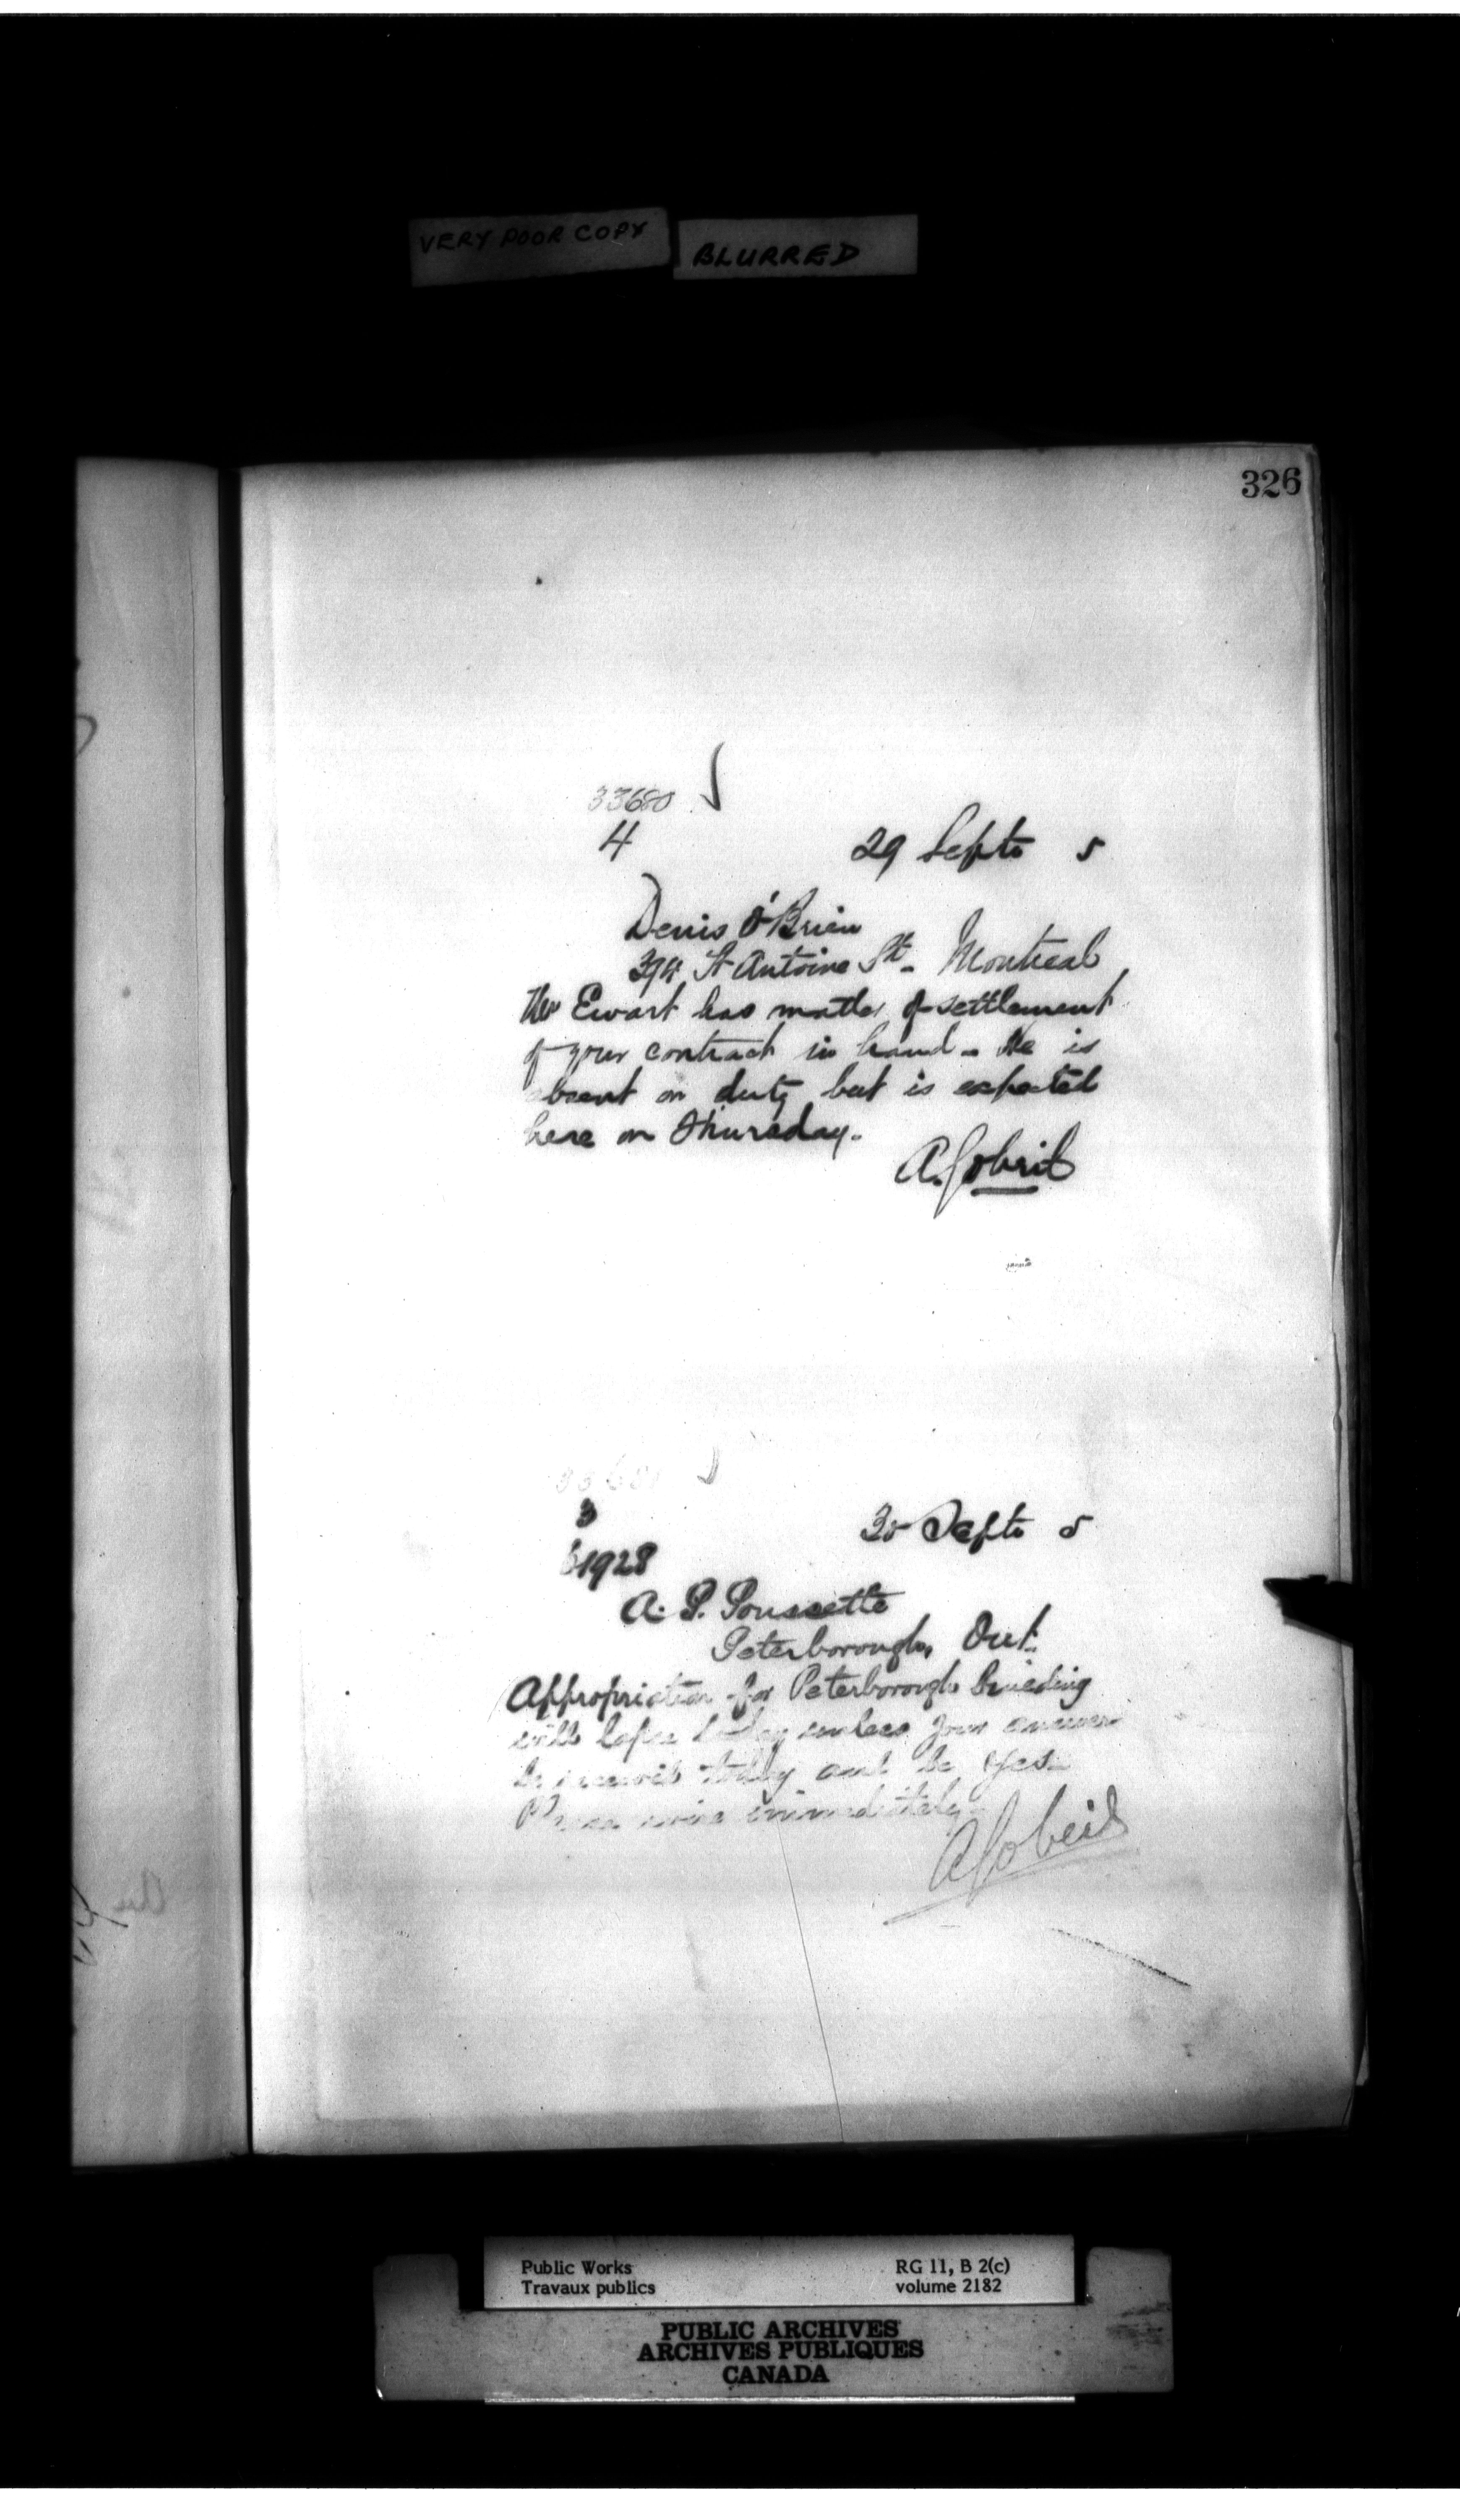 VERY POOR COPY
BLURRED
326
33680
4
29 Septr 5
Denis O'Brien
St Antoine St - Montreal
Mr Ewart has matter of settlement
of your contract in hand - He is
absent on duty but is expected
here on Thursday.
A. Gobeil
3
61928
30 Septr 5
A. P. Poussette
Peterborough, Ont.
Appropriation for Peterborough building
will lapse today unless your answer
be received today and be yes -
Please wire immediately -
A Gobeil
Public Works
Travaux publics
RG 11, B 2(c)
volume 2182
PUBLIC ARCHIVES
ARCHIVES PUBLIQUES
CANADA